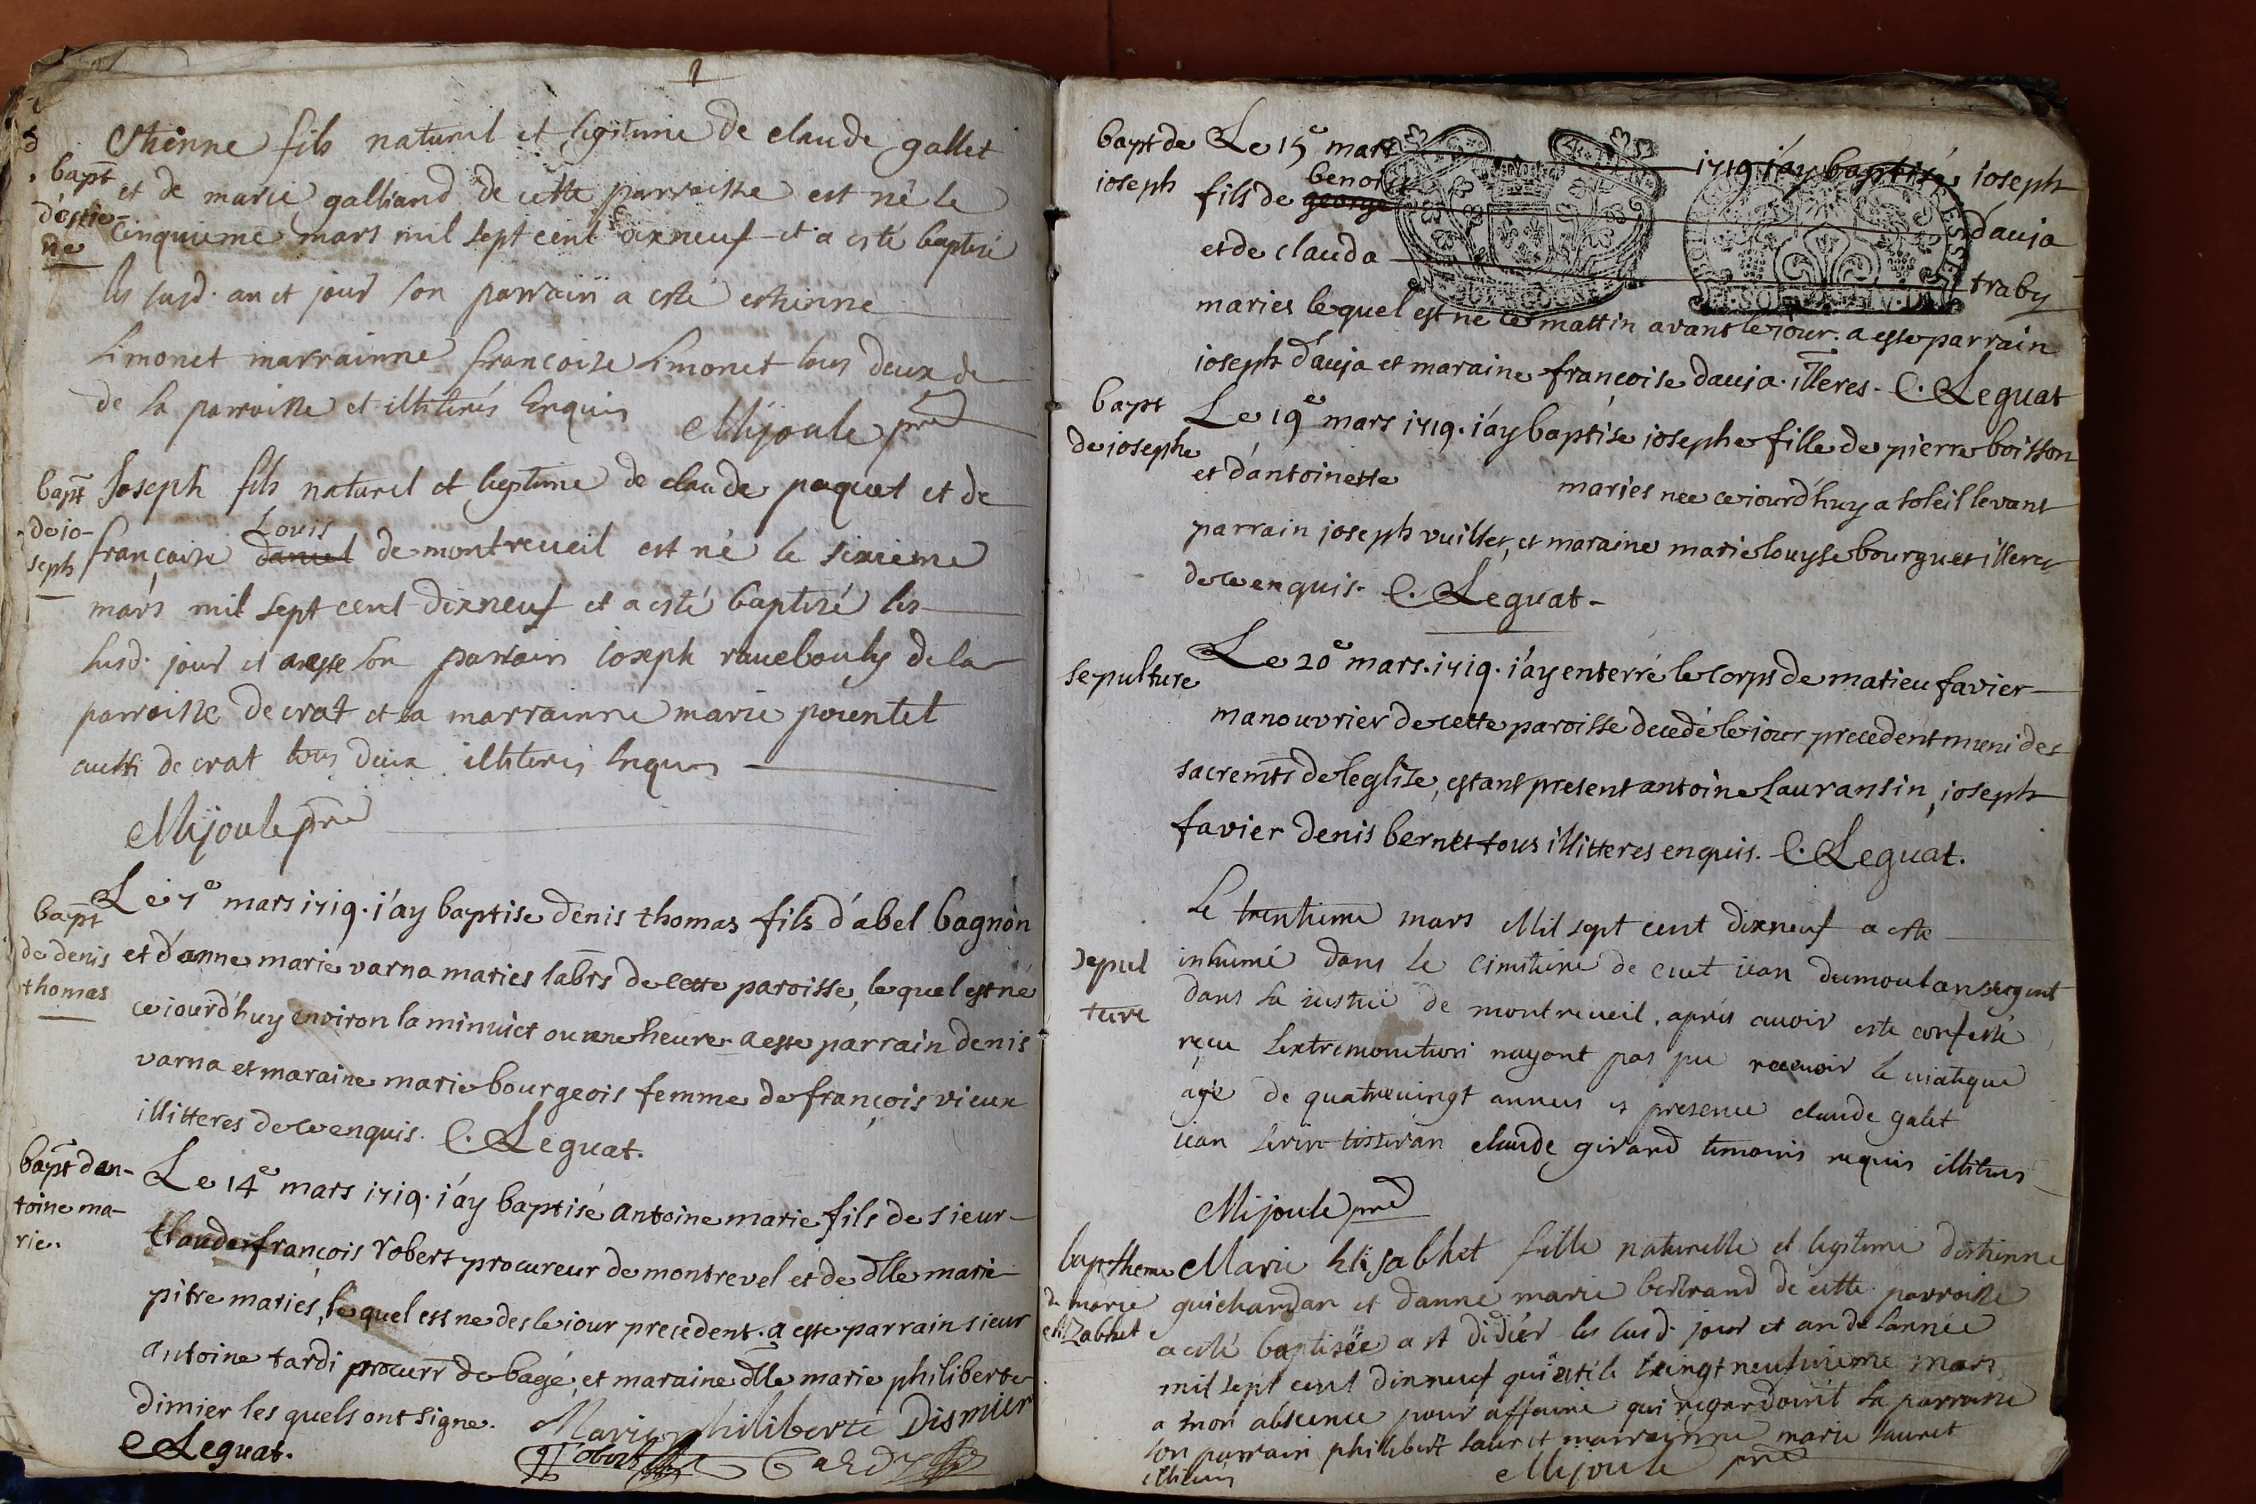 Etienne fils naturel et legitime de claude gallet
bapt d'estie-ne
et de marie galliand de cette parroisse est né le
cinquieme mars mil sept cent dixneuf et a esté baptisé
les susd. an et jour son parrain a esté estienne
simonet marrainne francoise simonet tous deux de
de la parroisse et illiterés Enquis
Mijoule pre
bapt de jo-seph
Joseph fils naturel et legitime de claude paquet et de
Louis
francoise daniel de montreveil est né le sixieme
mars mil sept cent dixneuf et a esté baptizé les
susd. jour et an son parrain ioseph ravebouly de la
parroisse de crat et sa marrainne marie pountet
aussi de crat tous deux illiteres Enquis
Mijoule pre
bapt de denis thomas
Le 7e mars 1719. i'ay baptise denis thomas fils d'abel bagnon
et d'anne marie varna maries labrs de cette paroisse, le quel est né
ce iourdhuy environ la minuict ou une heure a este parrain denis
varna et maraine marie bourgeois femme de françois vieux
illitteres de ce enquis. C. Leguat.
bapt dan-toine ma-rie..
Le 14e mars 1719. i'ay baptisé antoine marie fils de sieur
claude françois robert procureur de montrevel et de dlle marie
pitre maries, le quel est ne des le iour precedent. a este parrain sieur
antoine tardi procurr de bagé, et maraine dlle marie philiberte
dimier les quels ont signe. Marie philiberte Dismier
C Leguat. Robert Tardy
bapt de ioseph
Le 15e mars 1719 i'ay baptisé ioseph
benoi
fils de george dauja
et de clauda traby
maries le quel est ne ce mattin avant le iour. a este parrain
ioseph d'auja et maraine françoise dauja. illeres. C. Leguat
bapt de iosephe
Le 19e mars 1719. i'ay baptise iosephe fille de pierre boisson
et d'antoinette maries nee ce iourdhuy a soleil levant
parrain ioseph vuillet, et maraine marie louyse bourguet illeres
de ce enquis. C. Leguat
sepulture
Le 20e mars. 1719. i'ay enterré le corps de matieu favier
manouvrier de cette paroisse decedé le iour precedent muni des
sacremts de leglise, estant present antoine Lauransin, ioseph
favier denis bernet tous illitteres enquis. C. Leguat.
Sepul ture
Le trentieme mars Mil sept cent dixneuf a este
inhumé dans le cimitiere de cuet iean dumoulan sergent
dans la iustice de montreveil. aprés avoir este confessé
reçu Lextremonction nayant pas pu recevoir le viatique
agé de quatrevingt annees en presence claude galet
iean tisseran claude girard temoins requis illiteres
Mijoule pre
baptheme de marie elizabhet
Marie Elisabhet fille naturelle et legitime destienne
guichardan et danne marie bertrand de cette parroisse
a esté baptisée a st didier les susd. jour et an de lannée
mil sept cent dixneuf qui est le vingt neufvieme mars
a mon absence pour affaire qui regardoint la parroisse
son parrain philibert sauret marrainne marie sauret
illiteres Mijoule pre